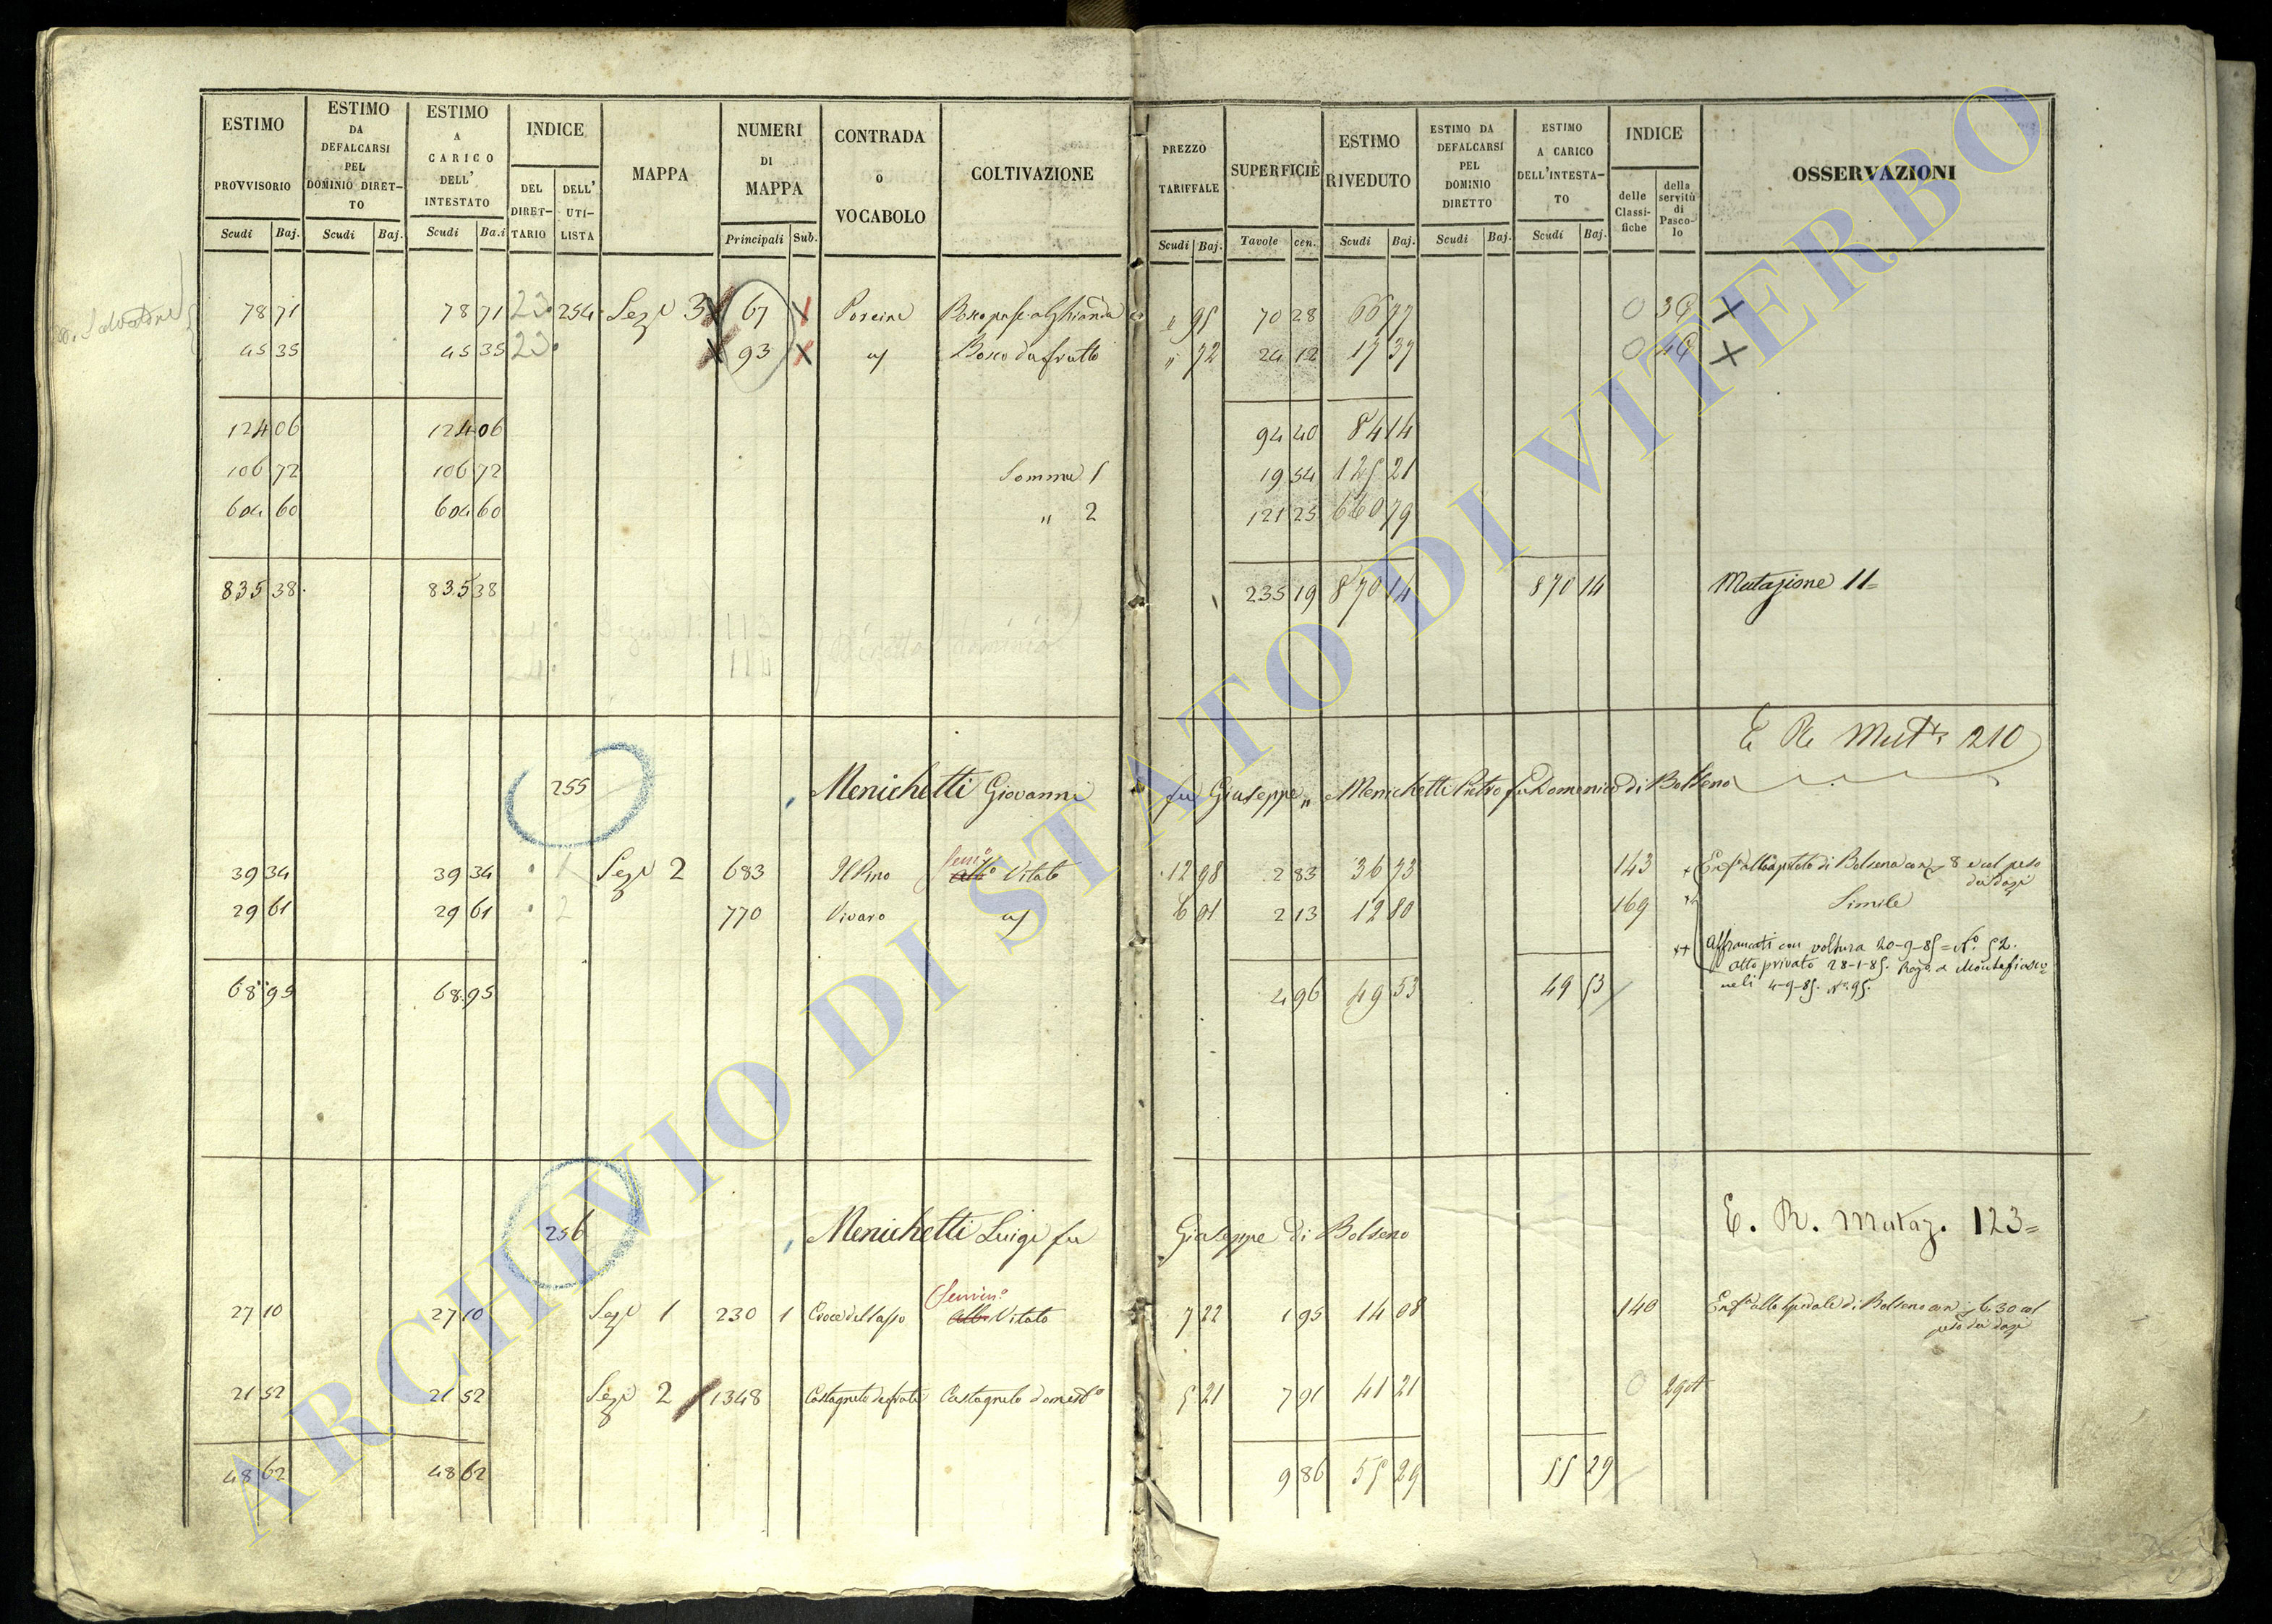 ESTIMO PROVVISORIO Scudi Baj.
ESTIMO DA DEFALCARSI PEL DOMINIO DIRET-TO Scudi Baj.
ESTIMO A CARICO DELL' INTESTATO Scudi Ba.i
INDICE DEL DIRET-TARIO DELL' UTI-LISTA
MAPPA
NUMERI DI MAPPA Principali Sub.
CONTRADA o VOCABOLO
COLTIVAZIONE
PREZZO TARIFFALE Scudi Baj.
SUPERFICIE Tavole cen.
ESTIMO RIVEDUTO Scudi Baj.
ESTIMO DA DEFALCARSI PEL DOMINIO DIRETTO Scudi Baj.
ESTIMO A CARICO DELL'INTESTA-TO Scudi Baj.
INDICE delle Classi-fiche della servitù di Pasco-lo
OSSERVAZIONI
Salvatore
78 71 78 71 23 254 Sez.e 3 X 67 X 70 28 66 77 0 X
45 35 45 35 23 X 93 X Bosco da frutto " 72 24 12 17 37 0 X
124 06 124 06 94 40 84 14
106 72 106 72 Somma 1 19 54 125 21
604 60 604 60 " 2 121 25 660 79
835 38 835 38 235 19 870 14 870 14 Mutazione 11=
Diretto dominio
E R Mut.e 210
255 Menichetti Giovanni fu Giuseppe " Menichetti Pietro fu Domenico di Bolseno
39 34 39 34 1 Sez.e 2 683 Il Pino Semi.o Alb.o Vitato 12 98 2 83 36 73 143
29 61 29 61 2 770 Vivaro 6 01 2 13 12 80 169 Simile
Affrancati con voltura 20-9-85= N.o 52.
atto privato 28-1-85. Reg.o a Montefiasco
neli 4-9-85. N.o 95.
68 95 68 95 4 96 49 53 49 53
256 Menichetti Luigi fu Giuseppe di Bolseno E. R. Mutaz. 123=
27 10 27 10 Sez.e 1 230 1 Croce del Sasso Semin.o Alb.o Vitato 7 22 1 95 14 08 140 Enf.a allo Spedale di Bolseno con 6.30 col
peso dei dazi
21 52 21 52 Sez.e 2 1348 Castagneto de frati Castagneto domest.o 5 21 7 91 41 21 0
48 62 48 62 9 86 55 29 55 29
ARCHIVIO DI STATO DI VITERBO